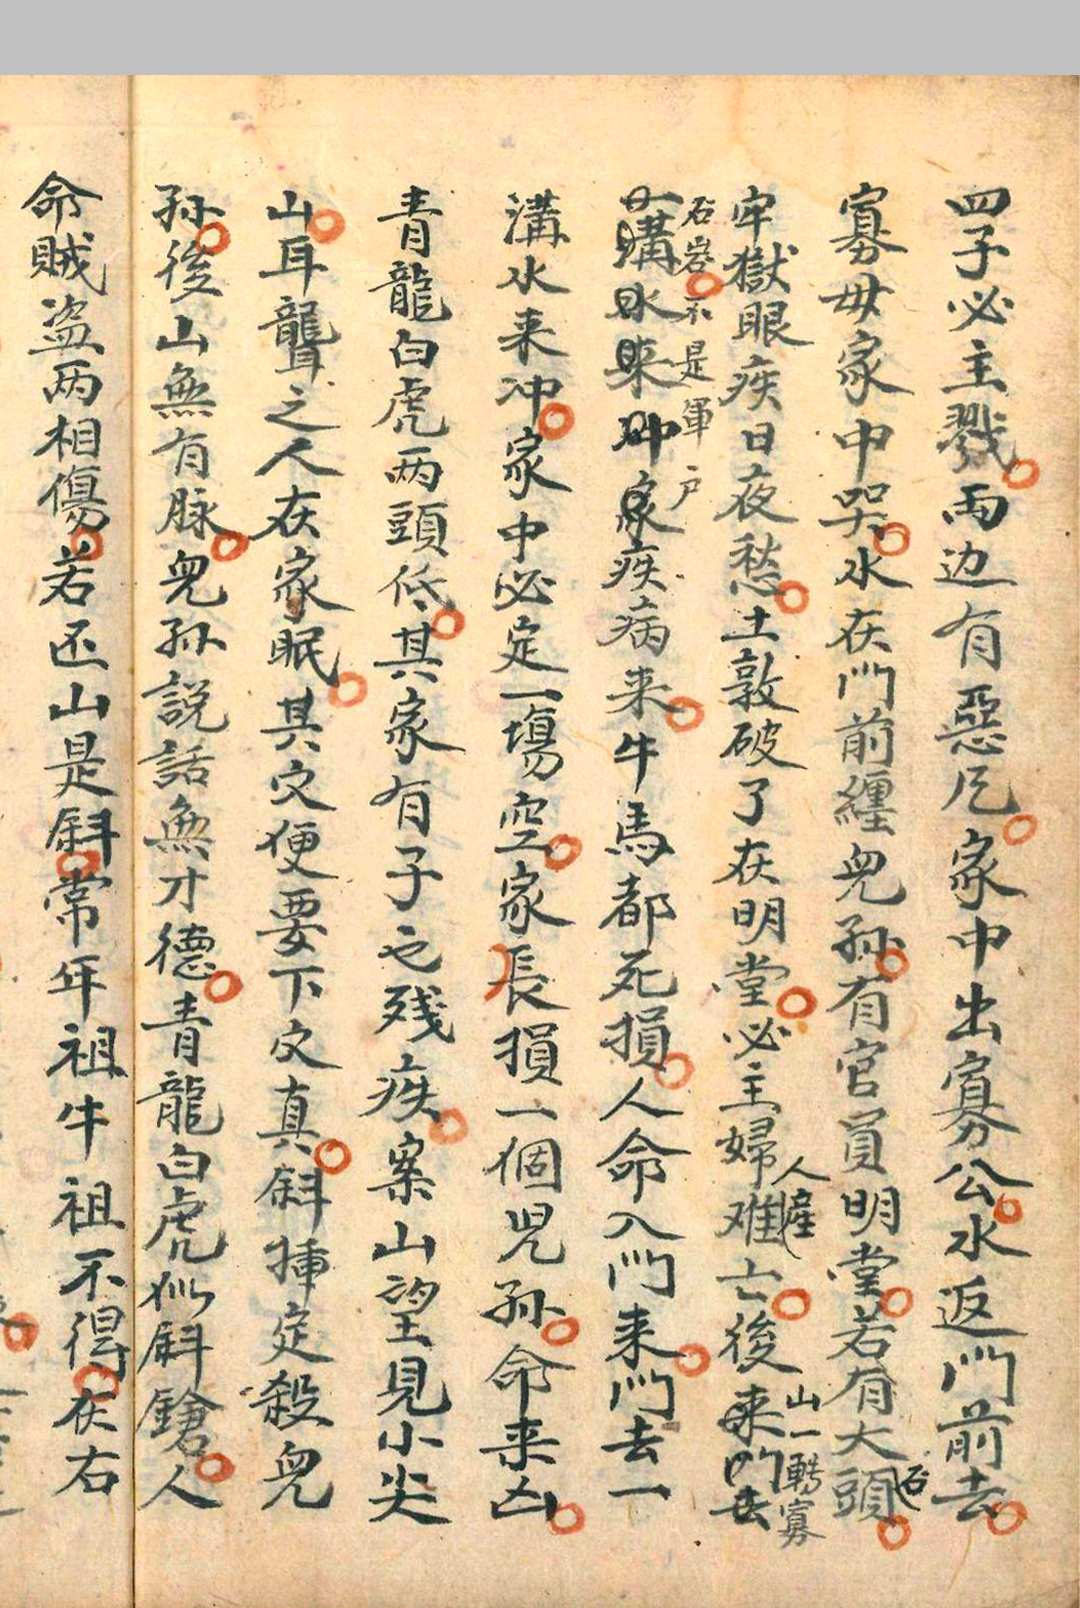 四子必主戮両边有惡石家中出寡公水返門前去
寡母家中哭水在門前纏児孫有官員明堂若有大石頭
牢獄眼疾日夜愁土敦破了在明堂必主婦人難産亡後山一
石岩不是軍戶
家疾病来牛馬都死損人命入門来門去一
溝水来冲家中必定一場空家長損一個児孫命来凶
青龍白虎両頭低其家有子也残疾案山望見小尖
山耳聾之人在家眠其穴便要下文真斜揷定殺児
孫後山無有脉児孫説話無才德青龍白虎似斜鎗人
命賊盗両相傷若还山是斜常年祖牛祖不得在右